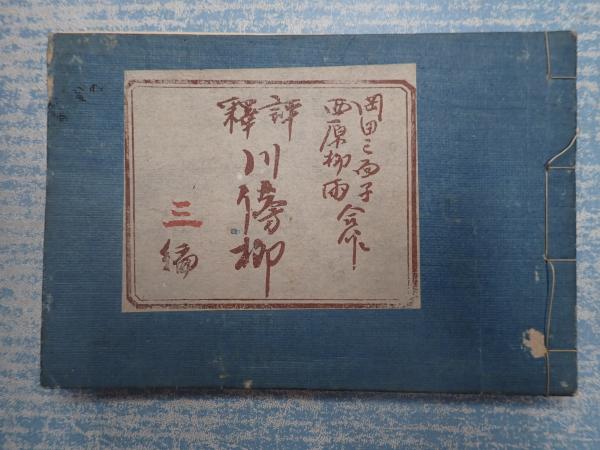 岡田三面子
西原柳雨 合作
評釋
川傍柳
三編